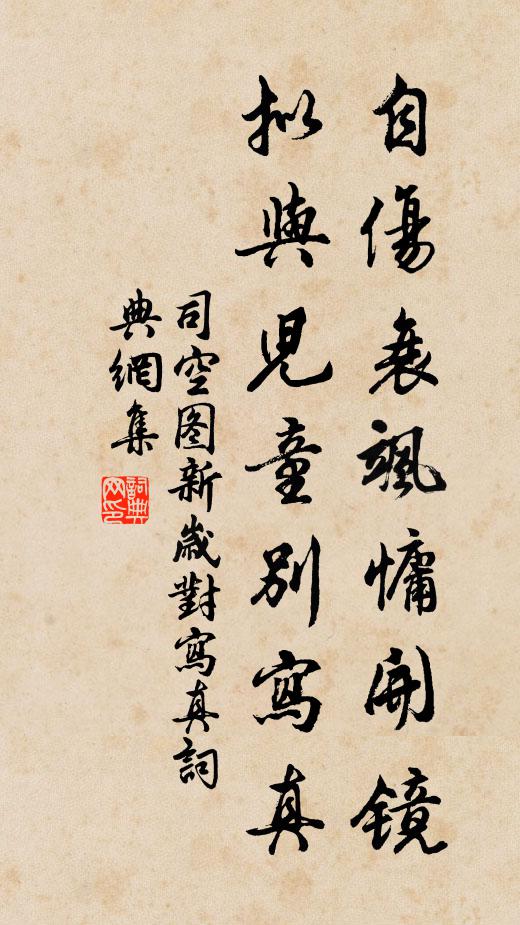 自傷衰颯慵開鏡
拟與児童別寫真
司空图新歲對寫真詞
典網集
詞典
网印